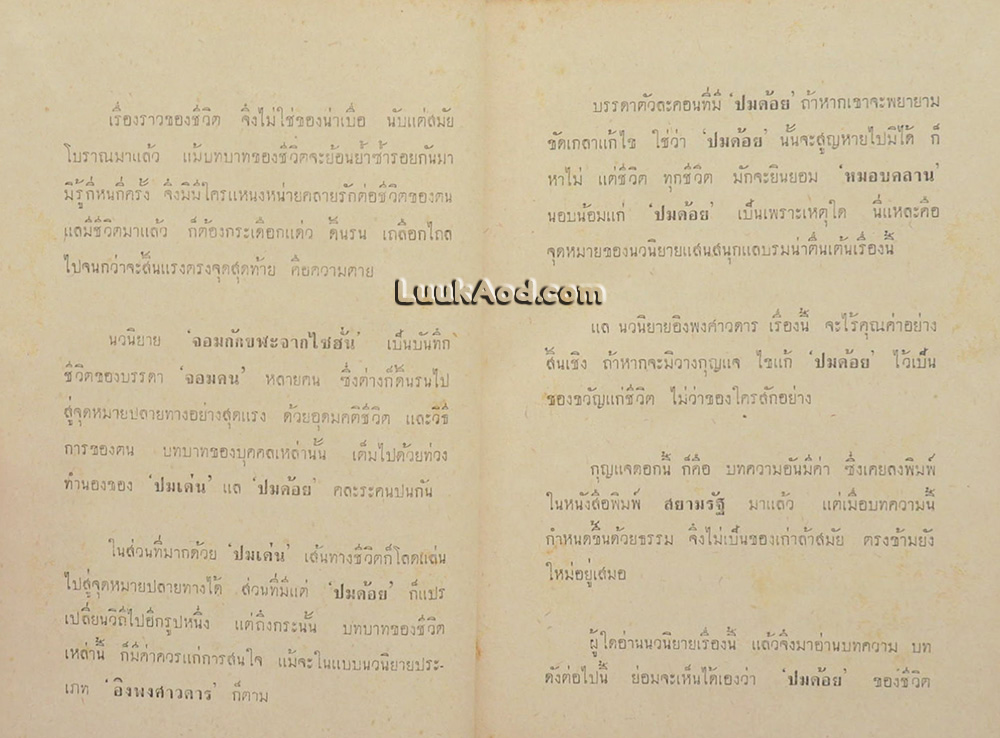 เรื่องราวของชีวิต จึงไม่ใช่ของน่าเบื่อ นับแต่สมัย
โบราณมาแล้ว แม้บทบาทของชีวิตจะย้อนย้ำซ้ำรอยกันมา
มิรู้กี่หนกี่ครั้ง จึงมิมีใครแหนงหน่ายคลายรักต่อชีวิตของตน
แลมีชีวิตมาแล้ว ก็ต้องกระเดือกแด่ว ดิ้นรน เถลือกไถล
ไปจนกว่าจะสิ้นแรงตรงจุดสุดท้าย คือความตาย
นวนิยาย ‘จอมภัคขพะจากไซฮั้น’ เป็นบันทึก
ชีวิตของบรรดา ‘จอมคน’ หลายคน ซึ่งต่างก็ดิ้นรนไป
สู่จุดหมายปลายทางอย่างสุดแรง ด้วยอุดมคติชีวิต และวิธี
การของตน บทบาทของบุคคลเหล่านั้น เต็มไปด้วยท่วง
ทำนองของ ‘ปมเด่น’ แล ‘ปมด้อย’ คละระคนปนกัน
ในส่วนที่มากด้วย ‘ปมเด่น’ เส้นทางชีวิตก็โลดแล่น
ไปสู่จุดหมายปลายทางได้ ส่วนที่มีแต่ ‘ปมด้อย’ ก็แปร
เปลี่ยนวิถีไปอีกรูปหนึ่ง แต่ถึงกระนั้น บทบาทของชีวิต
เหล่านี้ ก็มีค่าควรแก่การสนใจ แม้จะในแบบนวนิยายประ-
เภท ‘อิงพงศาวดาร’ ก็ตาม
บรรดาตัวละคอนที่มี ‘ปมด้อย’ ถ้าหากเขาจะพยายาม
ขัดเกลาแก้ไข ใช่ว่า ‘ปมด้อย’ นั้นจะสูญหายไปมิได้ ก็
หาไม่ แต่ชีวิต ทุกชีวิต มักจะยินยอม ‘หมอบคลาน’
นอบน้อมแก่ ‘ปมด้อย’ เป็นเพราะเหตุใด นี่แหละคือ
จุดหมายของนวนิยายแสนสนุกแลบรมน่าตื่นเต้นเรื่องนี้
แล นวนิยายอิงพงศาวดาร เรื่องนี้ จะไร้คุณค่าอย่าง
สิ้นเชิง ถ้าหากจะมิวางกุญแจ ไขแก้ ‘ปมด้อย’ ไว้เป็น
ของขวัญแก่ชีวิต ไม่ว่าของใครสักอย่าง
กุญแจดอกนี้ ก็คือ บทความอันมีค่า ซึ่งเคยลงพิมพ์
ในหนังสือพิมพ์ สยามรัฐ มาแล้ว แต่เมื่อบทความนี้
กำหนดขึ้นด้วยธรรม จึงไม่เป็นของเก่าล้าสมัย ตรงข้ามยัง
ใหม่อยู่เสมอ
ผู้ใดอ่านนวนิยายเรื่องนี้ แล้วจึงมาอ่านบทความ บท
ดังต่อไปนี้ ย่อมจะเห็นได้เองว่า ‘ปมด้อย’ ของชีวิต
LuukAod.com